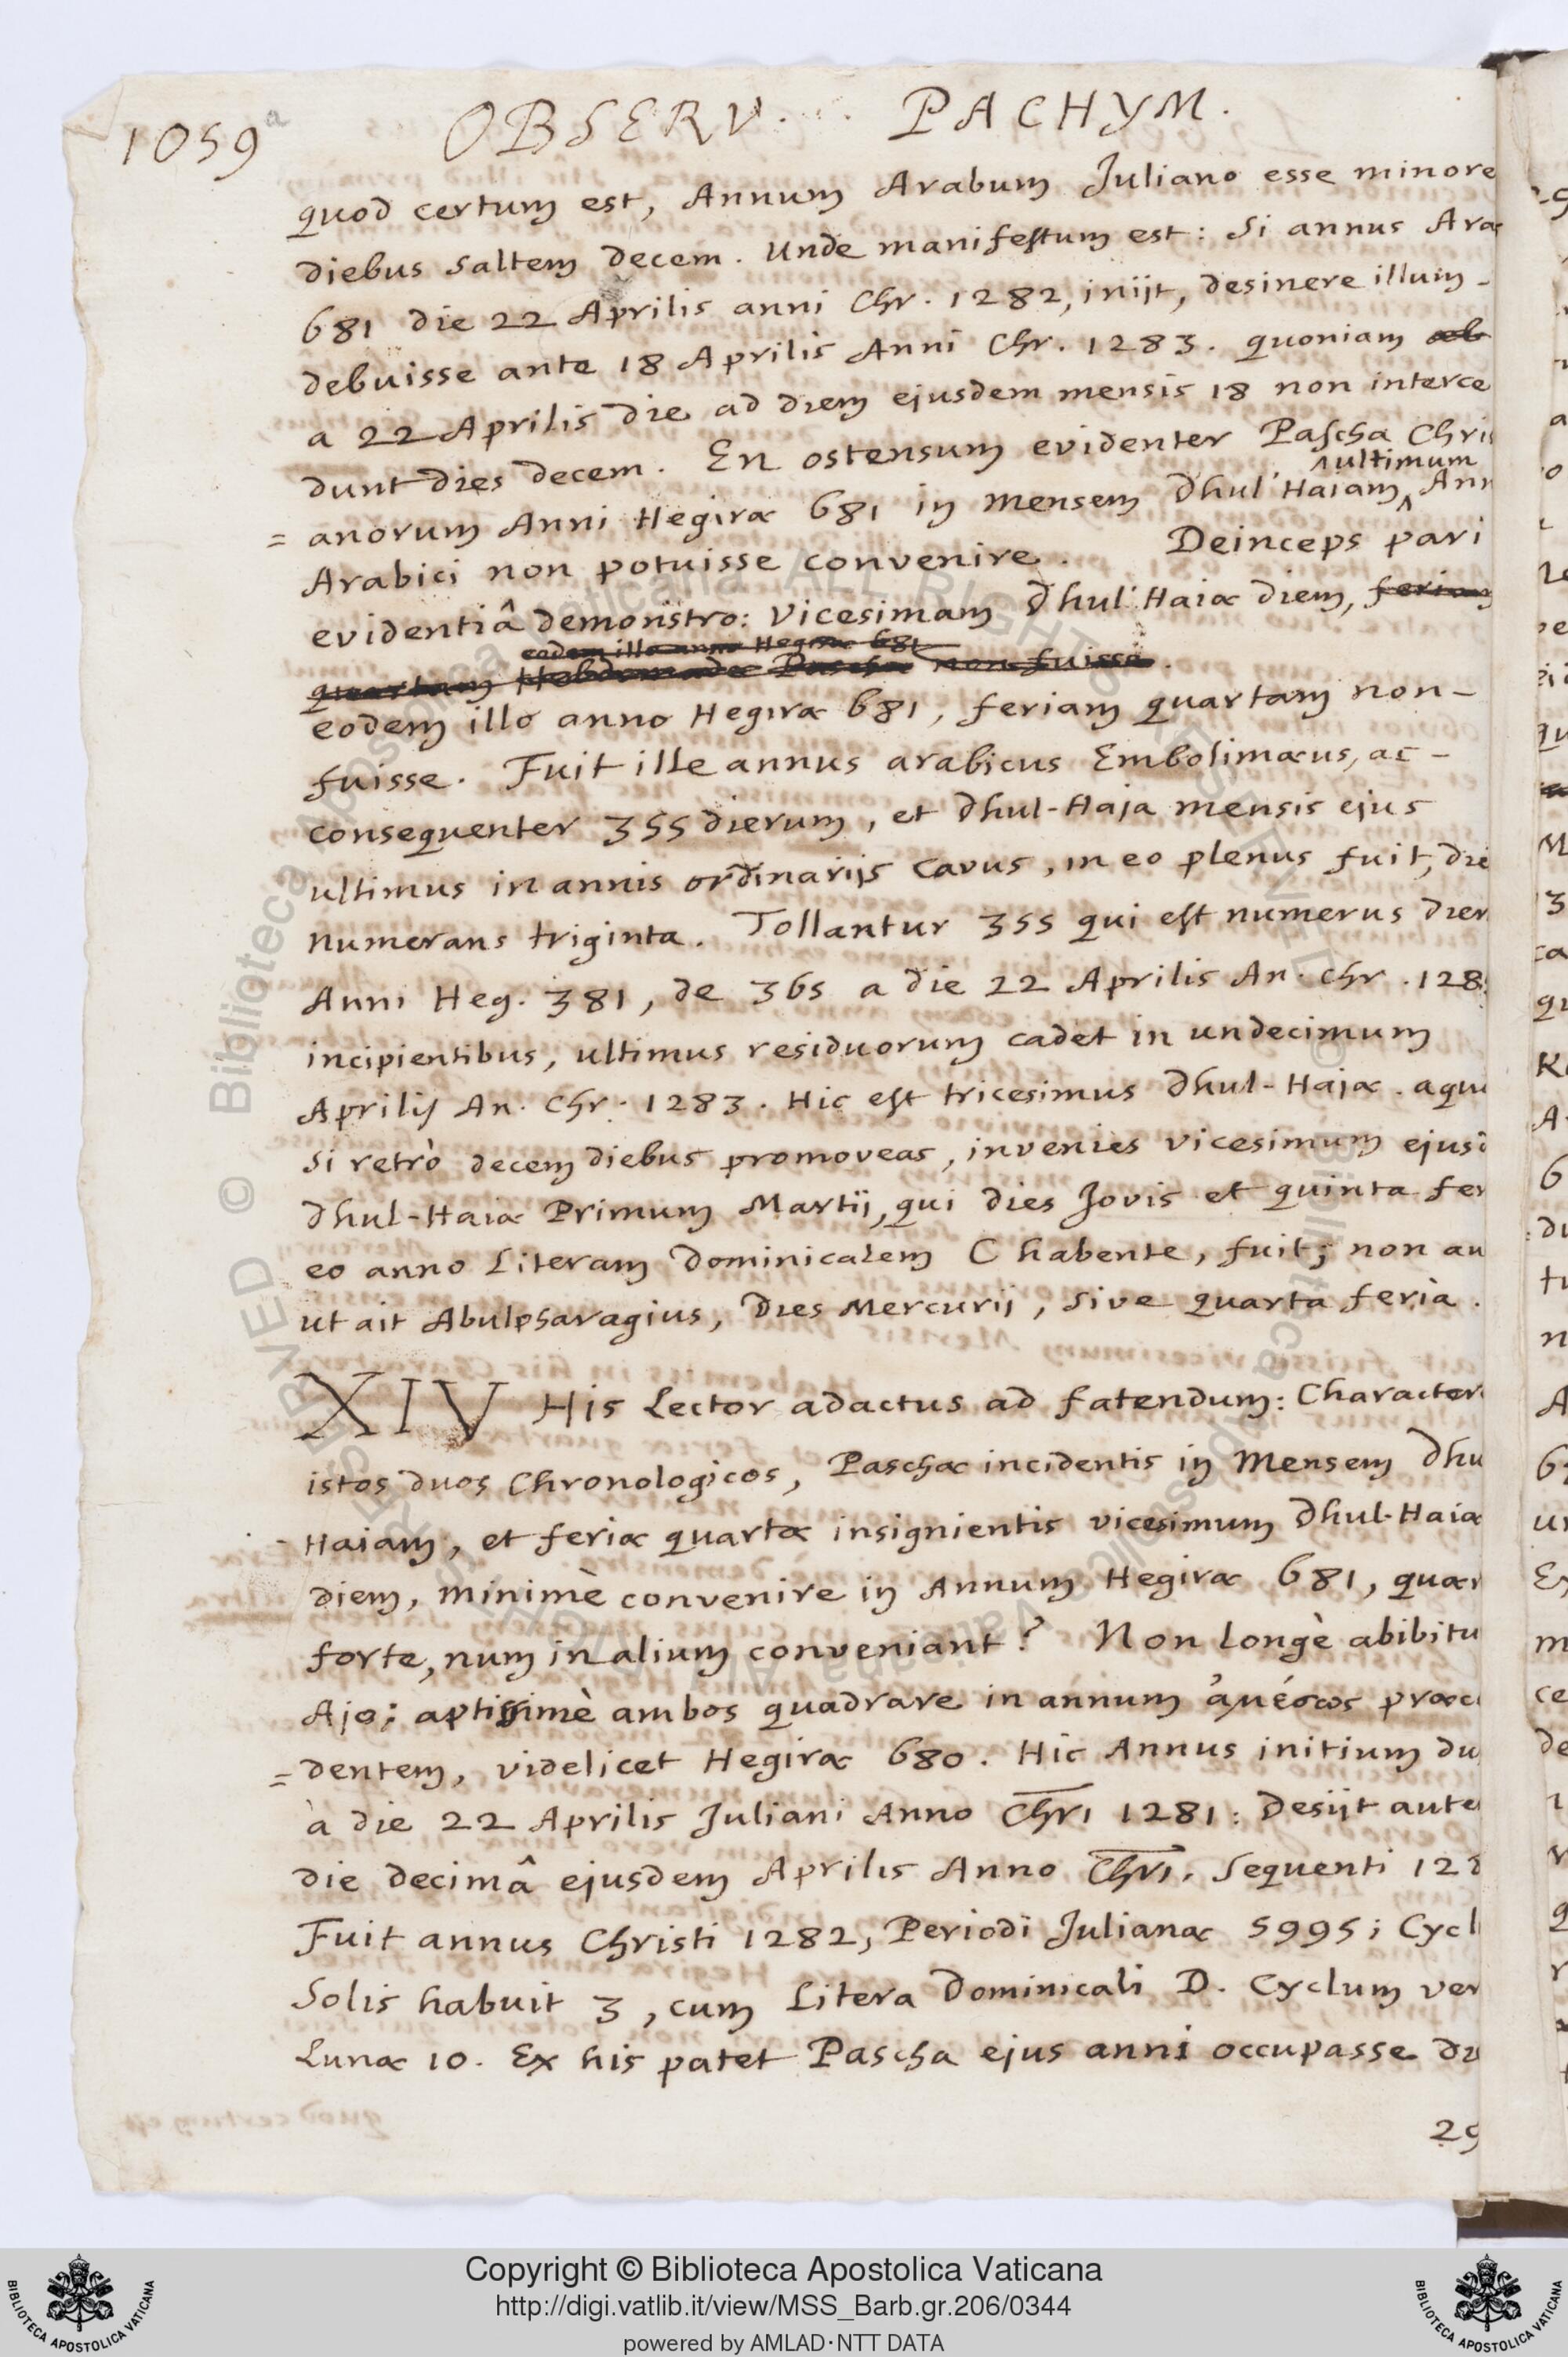 1059a
OBSERV. . . PACHYM.
quod certum est, Annum Arabum Juliano esse minore
diebus saltem decem. Unde manifestum est: Si annus Ara
681 die 22 Aprilis anni Chr. 1282, inijt, desinere illum -
debuisse ante 18 Aprilis Anni Chr. 1283. quoniam ab
a 22 Aprilis die ad diem ejusdem mensis 18 non interce
dunt dies decem. En ostensum evidenter Pascha Chri
ultimum
= anorum Anni Hegiræ 681 in mensem Dhul' Haiam, Ann
Arabici non potuisse convenire. Deinceps pari
evidentiâ demonstro: Vicesimam Dhul' Haiæ diem, feriam
eodem illo anno Hegiræ 681
quartam Hebdomadæ Paschæ non fuisse.
eodem illo anno Hegiræ 681, feriam quartam non -
fuisse. Fuit ille annus arabicus Embolimæus, ac -
consequenter 355 dierum, et Dhul-Haja mensis ejus
ultimus in annis ordinarijs cavus, in eo plenus fuit, die
numerans triginta. Tollantur 355 qui est numerus dier
Anni Heg. 381, de 365 a die 22 Aprilis An. Chr. 128
incipientibus, ultimus residuorum cadet in undecimum
Aprilis An. Chr. 1283. Hic est tricesimus Dhul-Hajæ. aquo
si retrò decem diebus promoveas, invenies vicesimum ejusd
Dhul-Haiæ Primum Martij, qui dies Jovis et quinta fer
eo anno Literam Dominicalem C habente, fuit; non au
ut ait Abulpharagius, Dies Mercurij, sive quarta feria.
XIV His Lector adactus ad fatendum: Character
istos duos Chronologicos, Paschæ incidentis in Mensem Dhu
- Haiam, et feriæ quartæ insignientis vicesimum Dhul-Haiæ
diem, minimè convenire in Annum Hegiræ 681, quær
forte, num in alium conveniant? Non longè abibitu
Ajo; aptissimè ambos quadrare in annum ἀμέσως præc
= dentem, videlicet Hegiræ 680. Hic Annus initium du
à die 22 Aprilis Juliani Anno Chri 1281: Desijt aute
die decimâ ejusdem Aprilis Anno Chri. Sequenti 128
Fuit annus Christi 1282, Periodi Julianæ 5995; Cycl
Solis habuit 3, cum Litera Dominicali D. Cyclum ver
Lunæ 10. Ex his patet Pascha ejus anni occupasse di
29
© Biblioteca Apostolica Vaticana ALL RIGHTS RESERVED
Copyright © Biblioteca Apostolica Vaticana
http://digi.vatlib.it/view/MSS_Barb.gr.206/0344
powered by AMLAD·NTT DATA
BIBLIOTECA APOSTOLICA VATICANA
BIBLIOTECA APOSTOLICA VATICANA